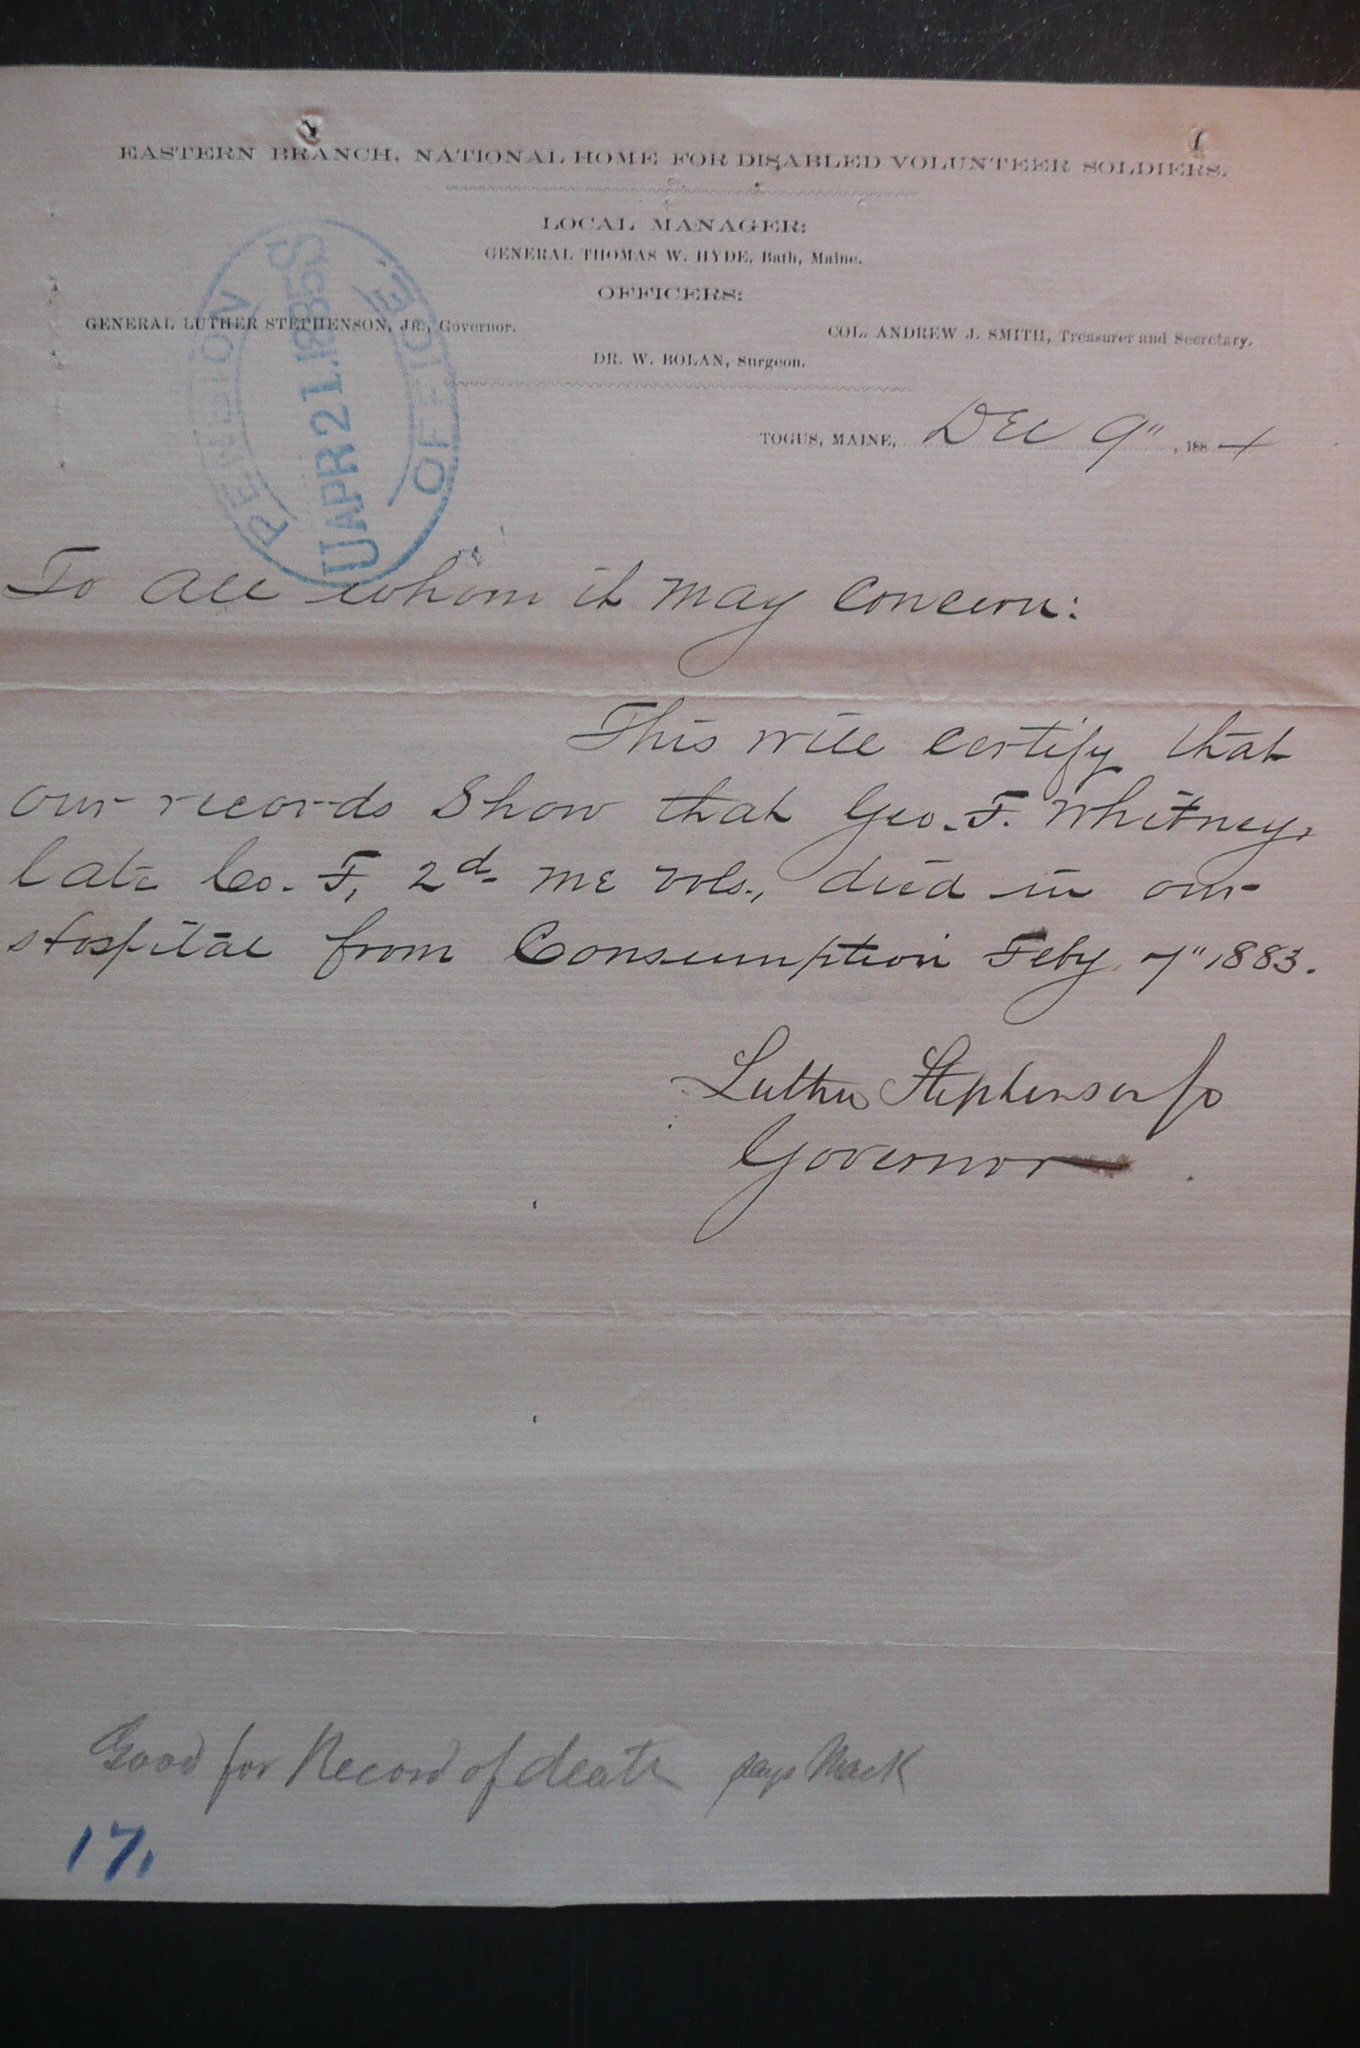 EASTERN BRANCH, NATIONAL HOME FOR DISABLED VOLUNTEER SOLDIERS.
LOCAL MANAGER:
GENERAL THOMAS W. HYDE, Bath, Maine.
OFFICERS:
GENERAL LUTHER STEPHENSON, JR., Governor.
COL. ANDREW J. SMITH, Treasurer and Secretary.
DR. W. BOLAN, Surgeon.
PENSION OFFICE.
APR 21 1885
TOGUS, MAINE, Dec 9", 1884
To all whom it may concern:
This will certify that
our records show that Geo. F. Whitney,
late Co. F, 2d Me Vols., died in our
Hospital from Consumption Feby 7" 1883.
Luther Stephenson Jr
Governor
Good for Record of death says Mack
17,